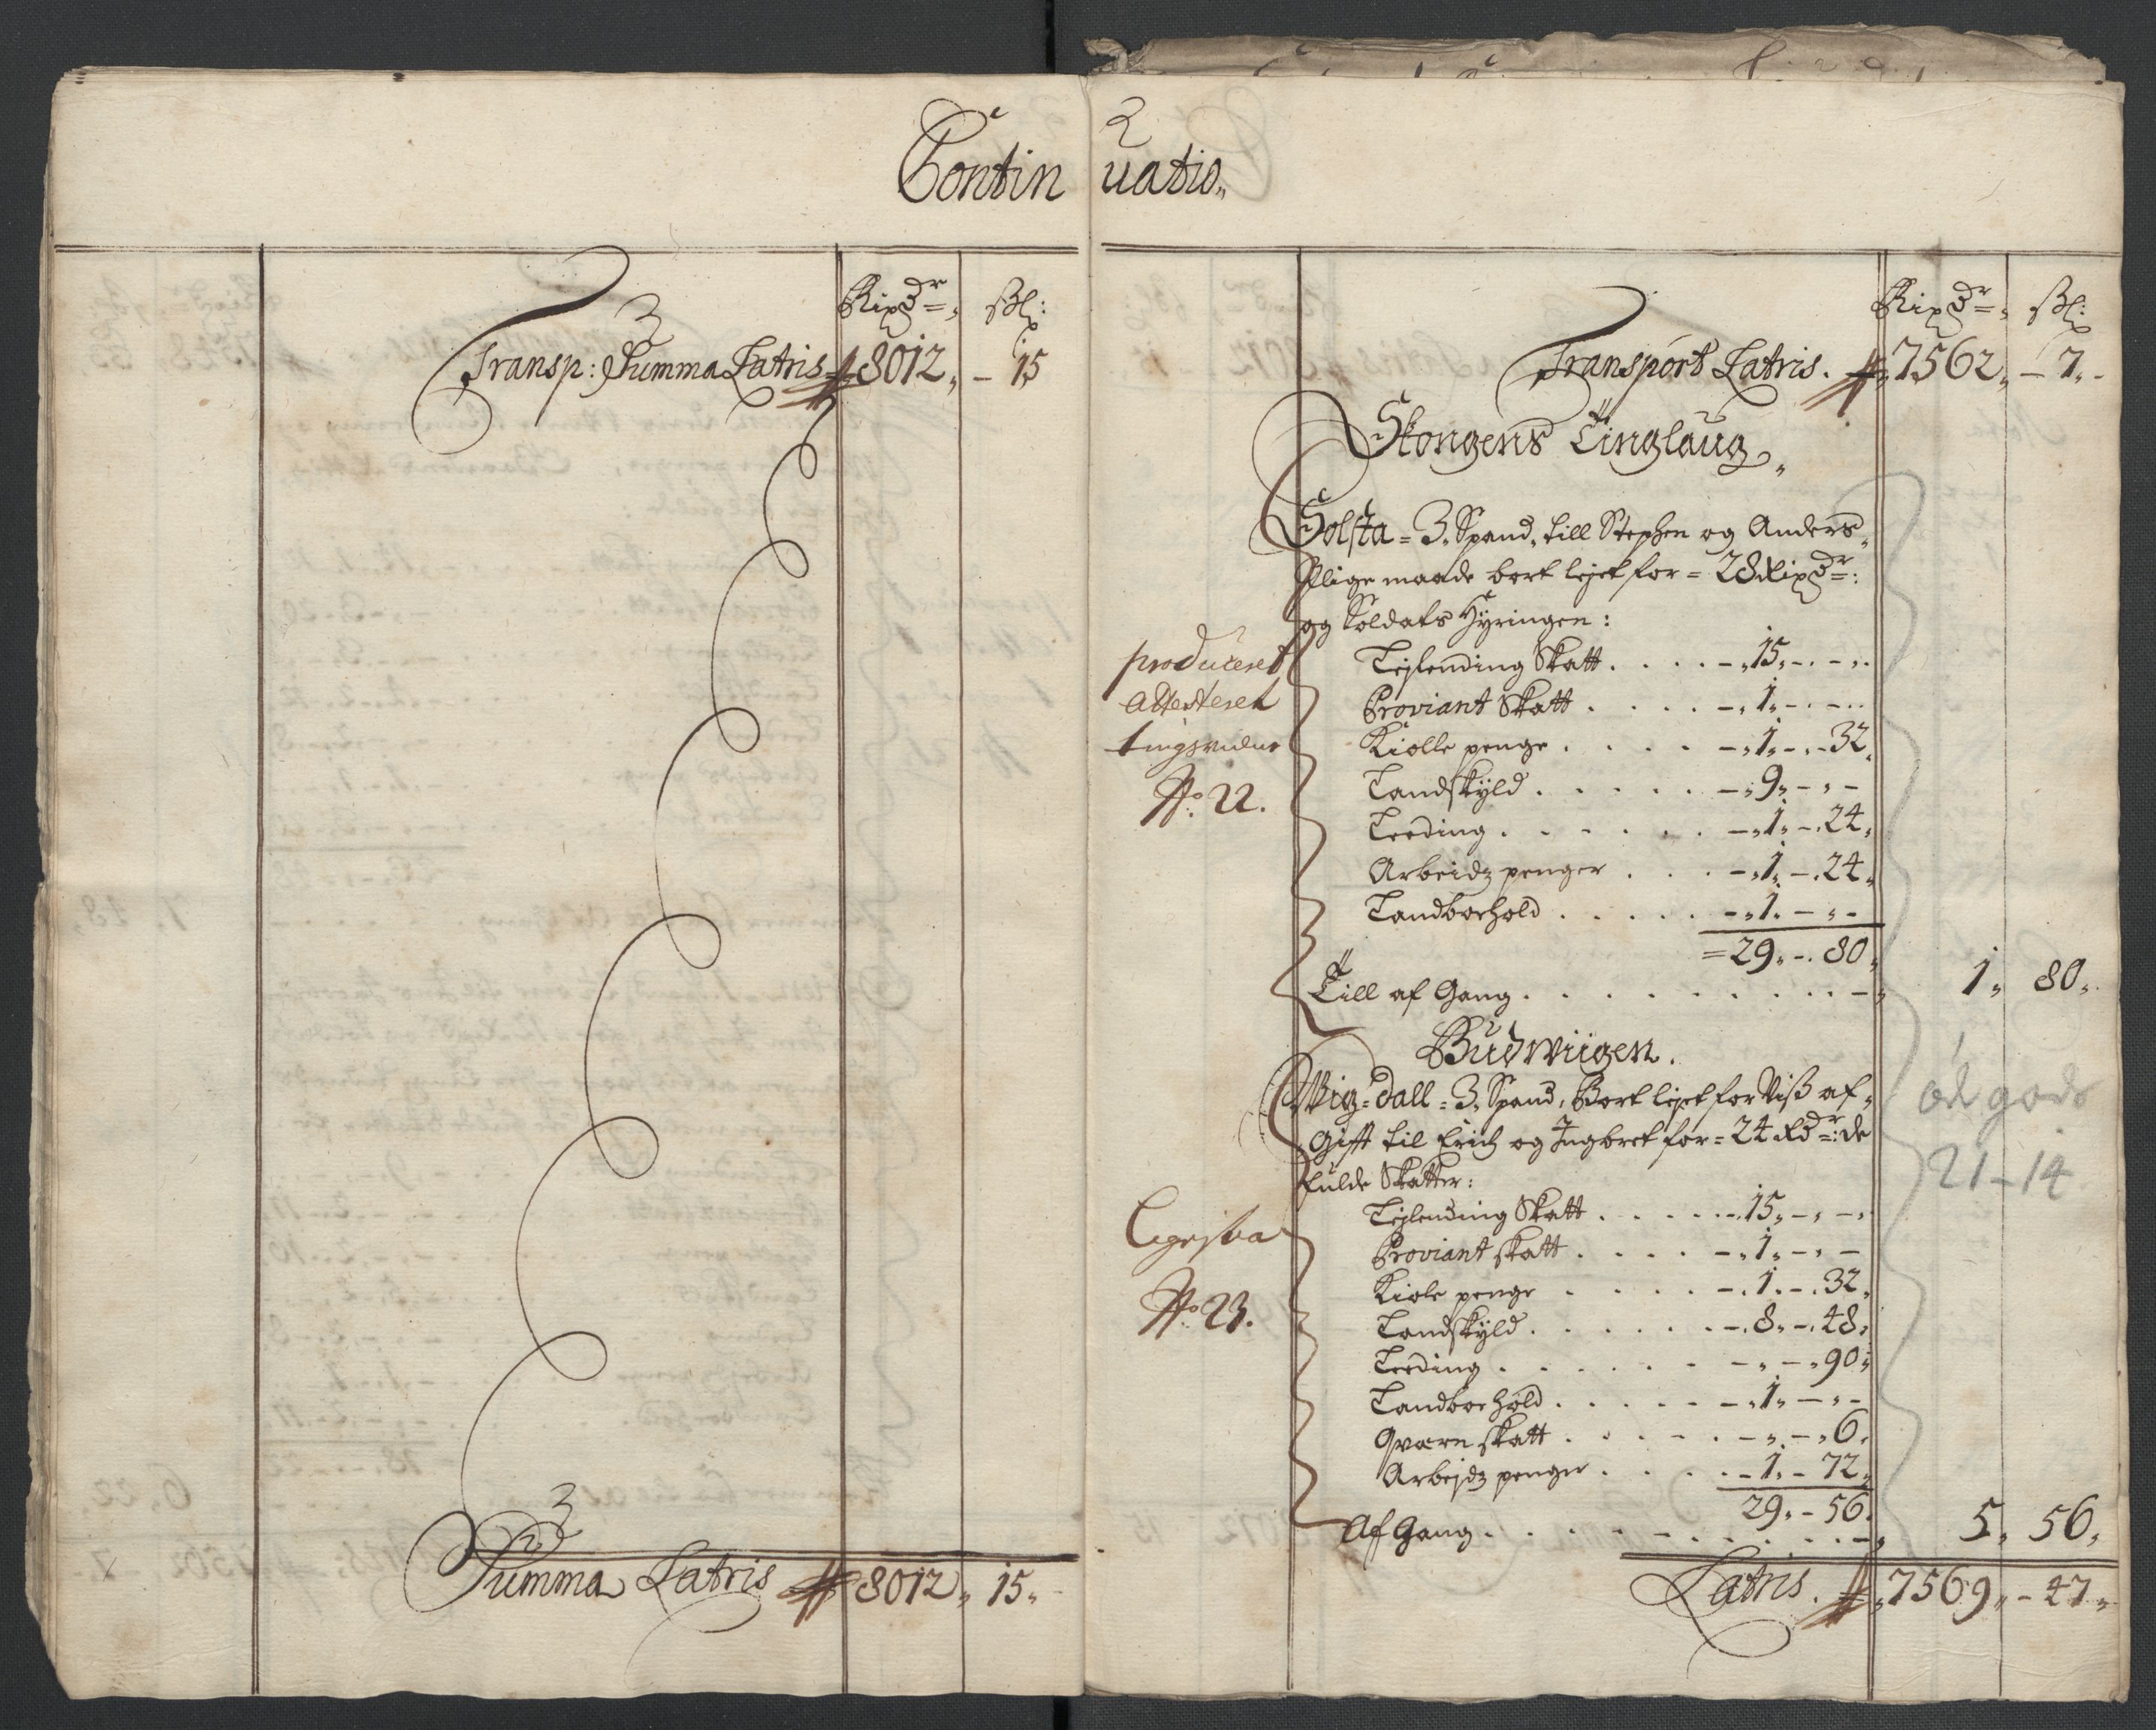 Contin uatio„
Rixdr„ ßl:
Transp: Summa Latris 8012„ – 15
Summa Latris 8012„ 15„
Rixdr„ ßl:
Transport Latris. 7562„ – 7„
Stongens Tinglaug„
Solsta = 3. Spand, till Stephen og Anders„
Slige maade bort lejet for = 28 Rixdr:
og Soldats Hÿringen:
produceret
attesteret
tingsvidne
No. 22.
Lejlending Skatt . . . . – „15„ – . – „
Proviant Skatt . . . . – „1„ – . – „
Kiolle penge . . . . – „1„ – „ – 32„
Landskÿld . . . . . – „9„ – „ –
Leeding . . . . . . – „1„ – . 24„
Arbeidz penger . . . – „1„ – . 24„
Landborhold . . . . . – „1„ – „ –
= 29„ – . 80„
Till af Gang . . . . . . . . . – „ 1„ 80„
Budwiigen.
Wig=dall = 3. Spand, Bort lejet for Viß af„
gifft til Erich og Ingbret for = 24 Rdr: de
fulde Skatter:
øde gods
21 – 14
Ligesaa
No. 23.
Lejlending Skatt . . . . – „15„ – „ – „
Proviant skatt . . . . – „1„ – „ –
Kiole penge . . . . – . 1 . – . 32„
Landskÿld . . . . . . – . 8„ – . 48„
Leeding . . . . . . – „ – „ 90„
Landborhold . . . . . – „1„ – „ –
Qværn skatt . . . . . – „ – „ 6„
Arbejdz penger . . . . – 1„ – 72„
29„ – 56„
Af Gang . . . . . . . . . – „ 5„ 56„
Latris. 7569„ – 47„